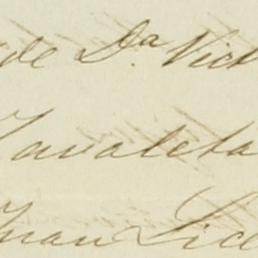 de Dª Vict
Zavaleta
Juan Lice